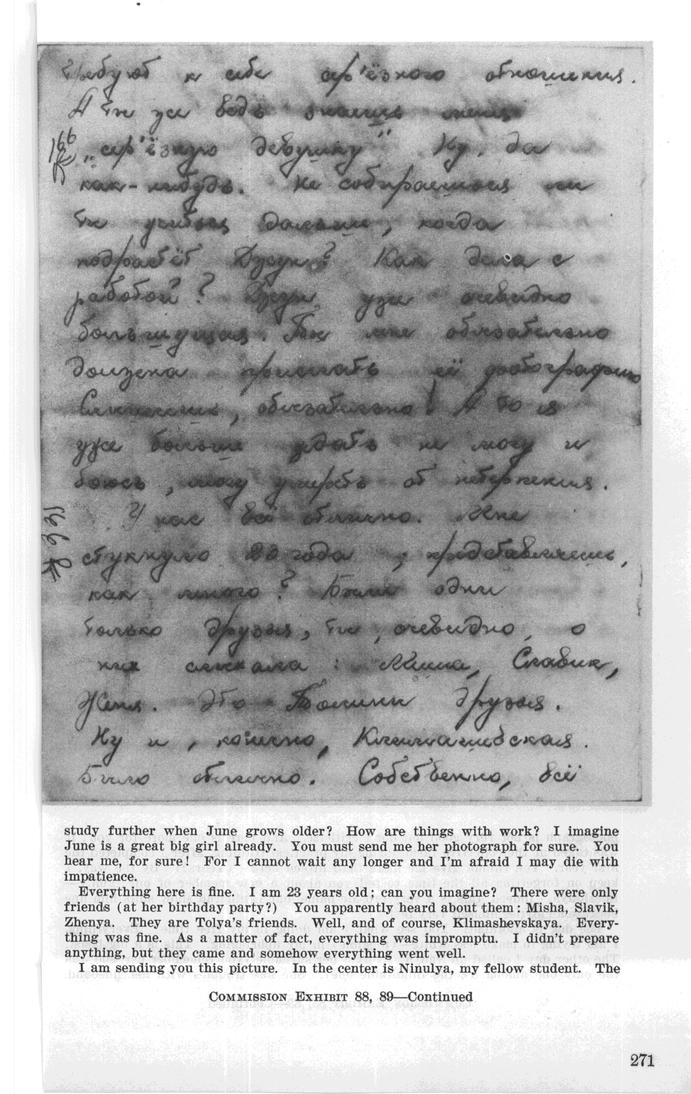 требуют к себе сер'ёзного отношения.
А ты же ведь знаешь меня
"сер'ёзную девушку" Ну, да
166
как-нибудь. Не собираешься ли
ты учиться дальше, когда
подрастёт Джун? Как дела с
работой? Джун уже очевидно
большущая. Ты мне обязательно
должна прислать её фотографию
Слышишь, обязательно! А то я
уже больше ждать не могу и
боюсь, могу умереть от нетерпения.
У нас всё отлично. Мне
166
стукнуло 23 года, представляешь,
как много? Были одни
только друзья, ты, очевидно, о
них слыхала: Миша, Славик,
Женя. Это Толины друзья.
Ну и, конечно, Климашевская.
Было отлично. Собственно, всё
study further when June grows older? How are things with work? I imagine
June is a great big girl already. You must send me her photograph for sure. You
hear me, for sure! For I cannot wait any longer and I'm afraid I may die with
impatience.
Everything here is fine. I am 23 years old; can you imagine? There were only
friends (at her birthday party?) You apparently heard about them: Misha, Slavik,
Zhenya. They are Tolya's friends. Well, and of course, Klimashevskaya. Every-
thing was fine. As a matter of fact, everything was impromptu. I didn't prepare
anything, but they came and somehow everything went well.
I am sending you this picture. In the center is Ninulya, my fellow student. The
COMMISSION EXHIBIT 88, 89—Continued
271